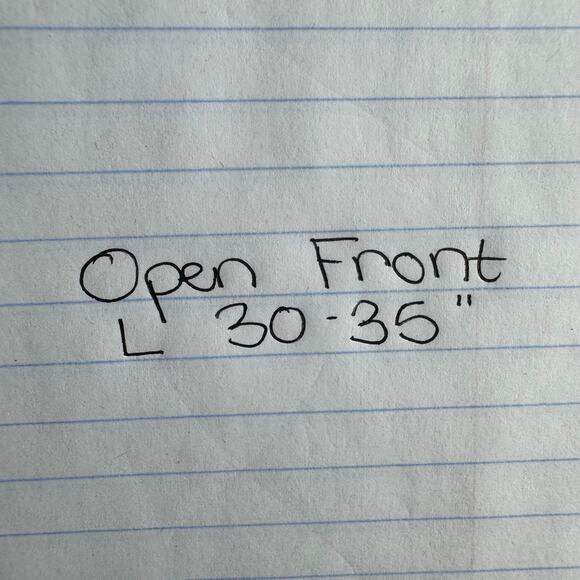 Open Front
L 30-35"